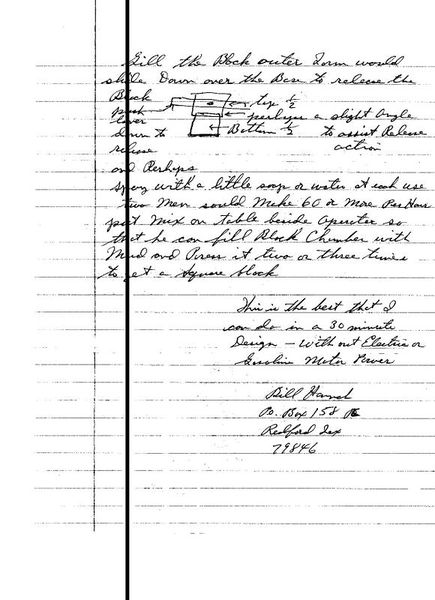 fill the Block outer Form would
slide Down over the Base to release the
Block
push
lever
down to
release
top 1/2
perhaps a slight Angle
Bottom 1/2
to assist Release
action
and Perhaps
spray with a little soap or water at each use
two Men could Make 60 or More Per Hour
put Mix on table beside operator so
that he can fill Block Chamber with
Mud and Press it two or three times
to get a square block
This is the best that I
can do in a 30 minute
Design - without Electric or
Gasoline Motor Power
Bill
Po. Box 158
Redford Tex
79846